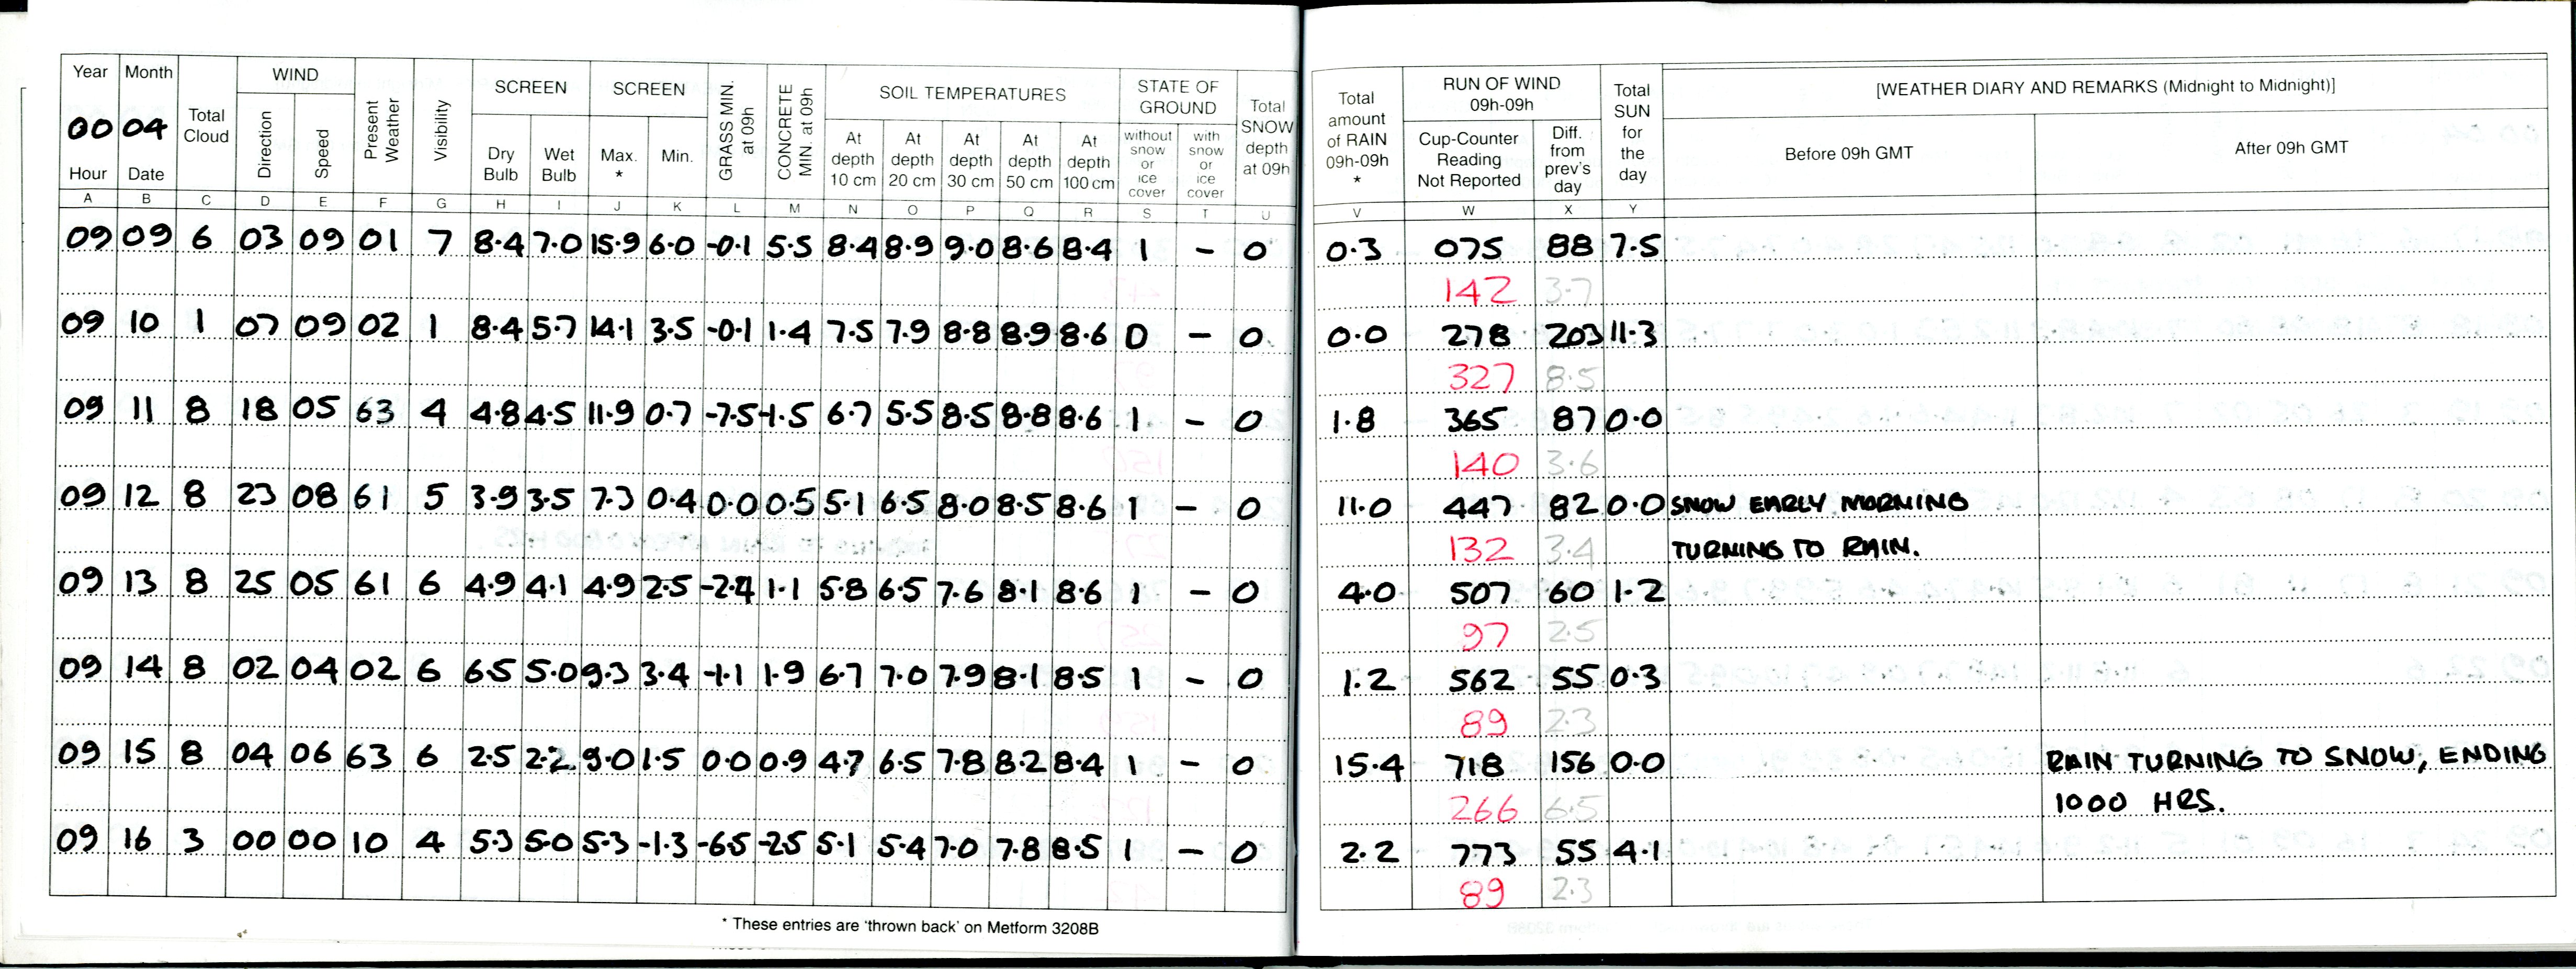 Year Month Total Cloud WIND Present Weather Visibility SCREEN SCREEN GRASS MIN. at 09h CONCRETE MIN. at 09h SOIL TEMPERATURES STATE OF GROUND Total SNOW depth at 09h Total amount of RAIN 09h-09h * RUN OF WIND 09h-09h Total SUN for the day [WEATHER DIARY AND REMARKS (Midnight to Midnight)]
00 04
Hour Date Direction Speed Dry Bulb Wet Bulb Max. * Min. At depth 10 cm At depth 20 cm At depth 30 cm At depth 50 cm At depth 100 cm without snow or ice cover with snow or ice cover Cup-Counter Reading Not Reported Diff. from prev's day Before 09h GMT After 09h GMT
A B C D E F G H I J K L M N O P Q R S T U V W X Y
09 09 6 03 09 01 7 8.4 7.0 15.9 6.0 -0.1 5.5 8.4 8.9 9.0 8.6 8.4 1 – 0 0.3 075 88 7.5
142 3.7
09 10 1 07 09 02 1 8.4 5.7 14.1 3.5 -0.1 1.4 7.5 7.9 8.8 8.9 8.6 0 – 0 0.0 278 203 11.3
327 8.5
09 11 8 18 05 63 4 4.8 4.5 11.9 0.7 -7.5 -1.5 6.7 5.5 8.5 8.8 8.6 1 – 0 1.8 365 87 0.0
140 3.6
09 12 8 23 08 61 5 3.9 3.5 7.3 0.4 0.0 0.5 5.1 6.5 8.0 8.5 8.6 1 – 0 11.0 447 82 0.0 SNOW EARLY MORNING
132 3.4 TURNING TO RAIN.
09 13 8 25 05 61 6 4.9 4.1 4.9 2.5 1.1 5.8 6.5 7.6 8.1 8.6 1 – 0 4.0 507 60 1.2
97 2.5
09 14 8 02 04 02 6 6.5 5.0 9.3 3.4 -1.1 1.9 6.7 7.0 7.9 8.1 8.5 1 – 0 1.2 562 55 0.3
89 2.3
09 15 8 04 06 63 6 2.5 2.2 9.0 1.5 0.0 0.9 4.7 6.5 7.8 8.2 8.4 1 – 0 15.4 718 156 0.0 RAIN TURNING TO SNOW, ENDING
266 6.5 1000 HRS.
09 16 3 00 00 10 4 5.3 5.0 5.3 -1.3 -6.5 -2.5 5.1 5.4 7.0 7.8 8.5 1 – 0 2.2 773 55 4.1
89 2.3
* These entries are 'thrown back' on Metform 3208B